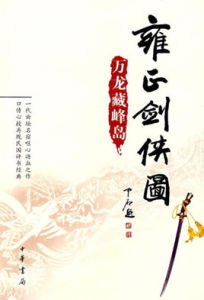 雍正剑侠图
万龙藏峰岛
一代曲坛名宿呕心沥血之作
口传心授再现民国评书经典
中华书局